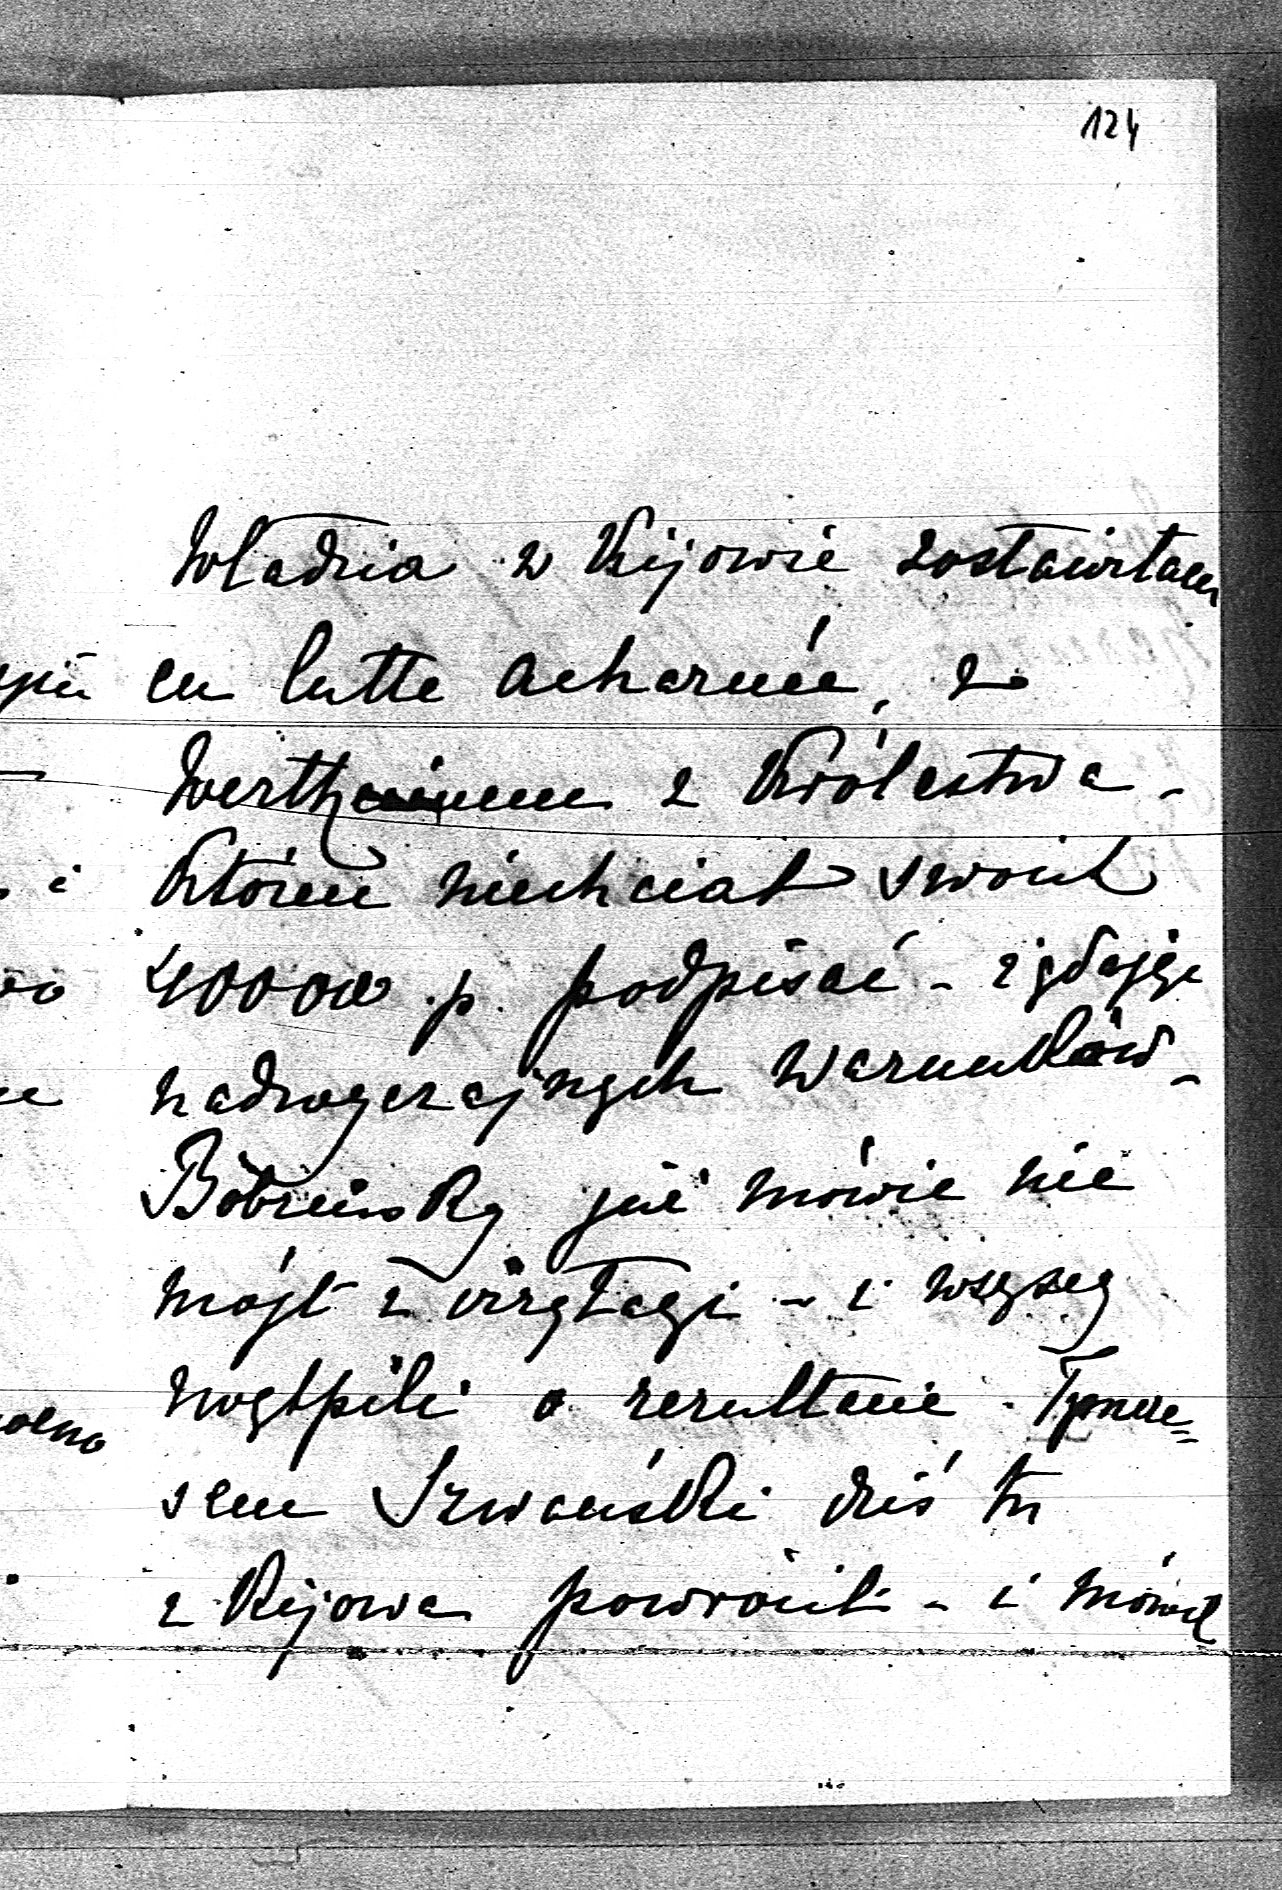 124
Władzia w Kijowie zostawiłam
en lutte acharnée, z
Wertheimem z Królestwa -
Którzii niechciał swoich
40000 p. podpisać - żądając
nadzwyczajnych warunków -
Bobrinsky już mówić nie
mógł z irytacyi - i wszyscy
wątpili o rezultacie. Tymcza=
sem Szwański dziś tu
z Kijowa powrócił - i mówił